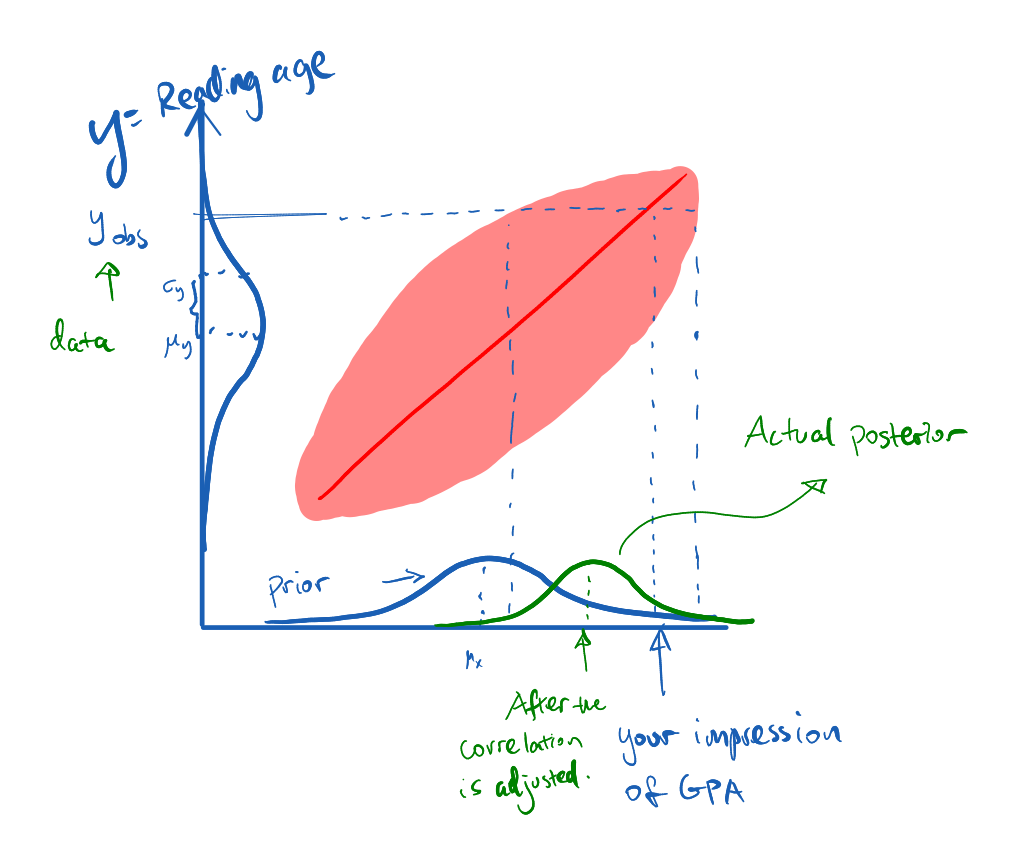 y= Reading age
y obs
σy
data
μy
Actual posterior
Prior
μx
After the
correlation
is adjusted.
your impression
of GPA